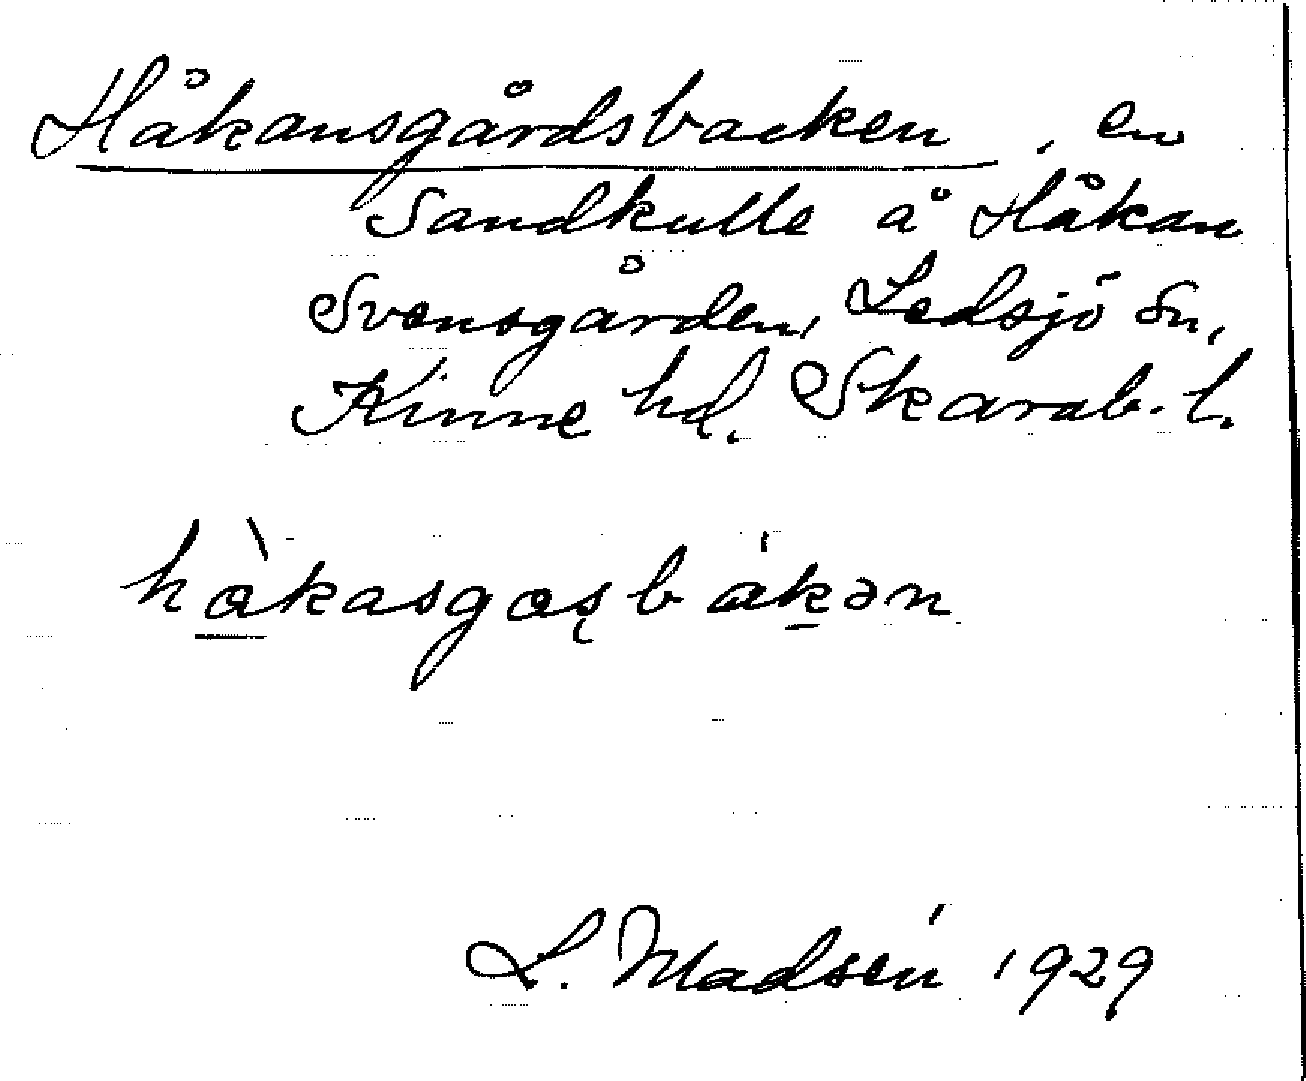 Håkansgårdsbacken, en
Sandkulle å Håkan
Svensgården, Ledsjö Sn,
Kinne hd. Skarab. l.
hàkasgaʂbákən
L. Madsén 1929